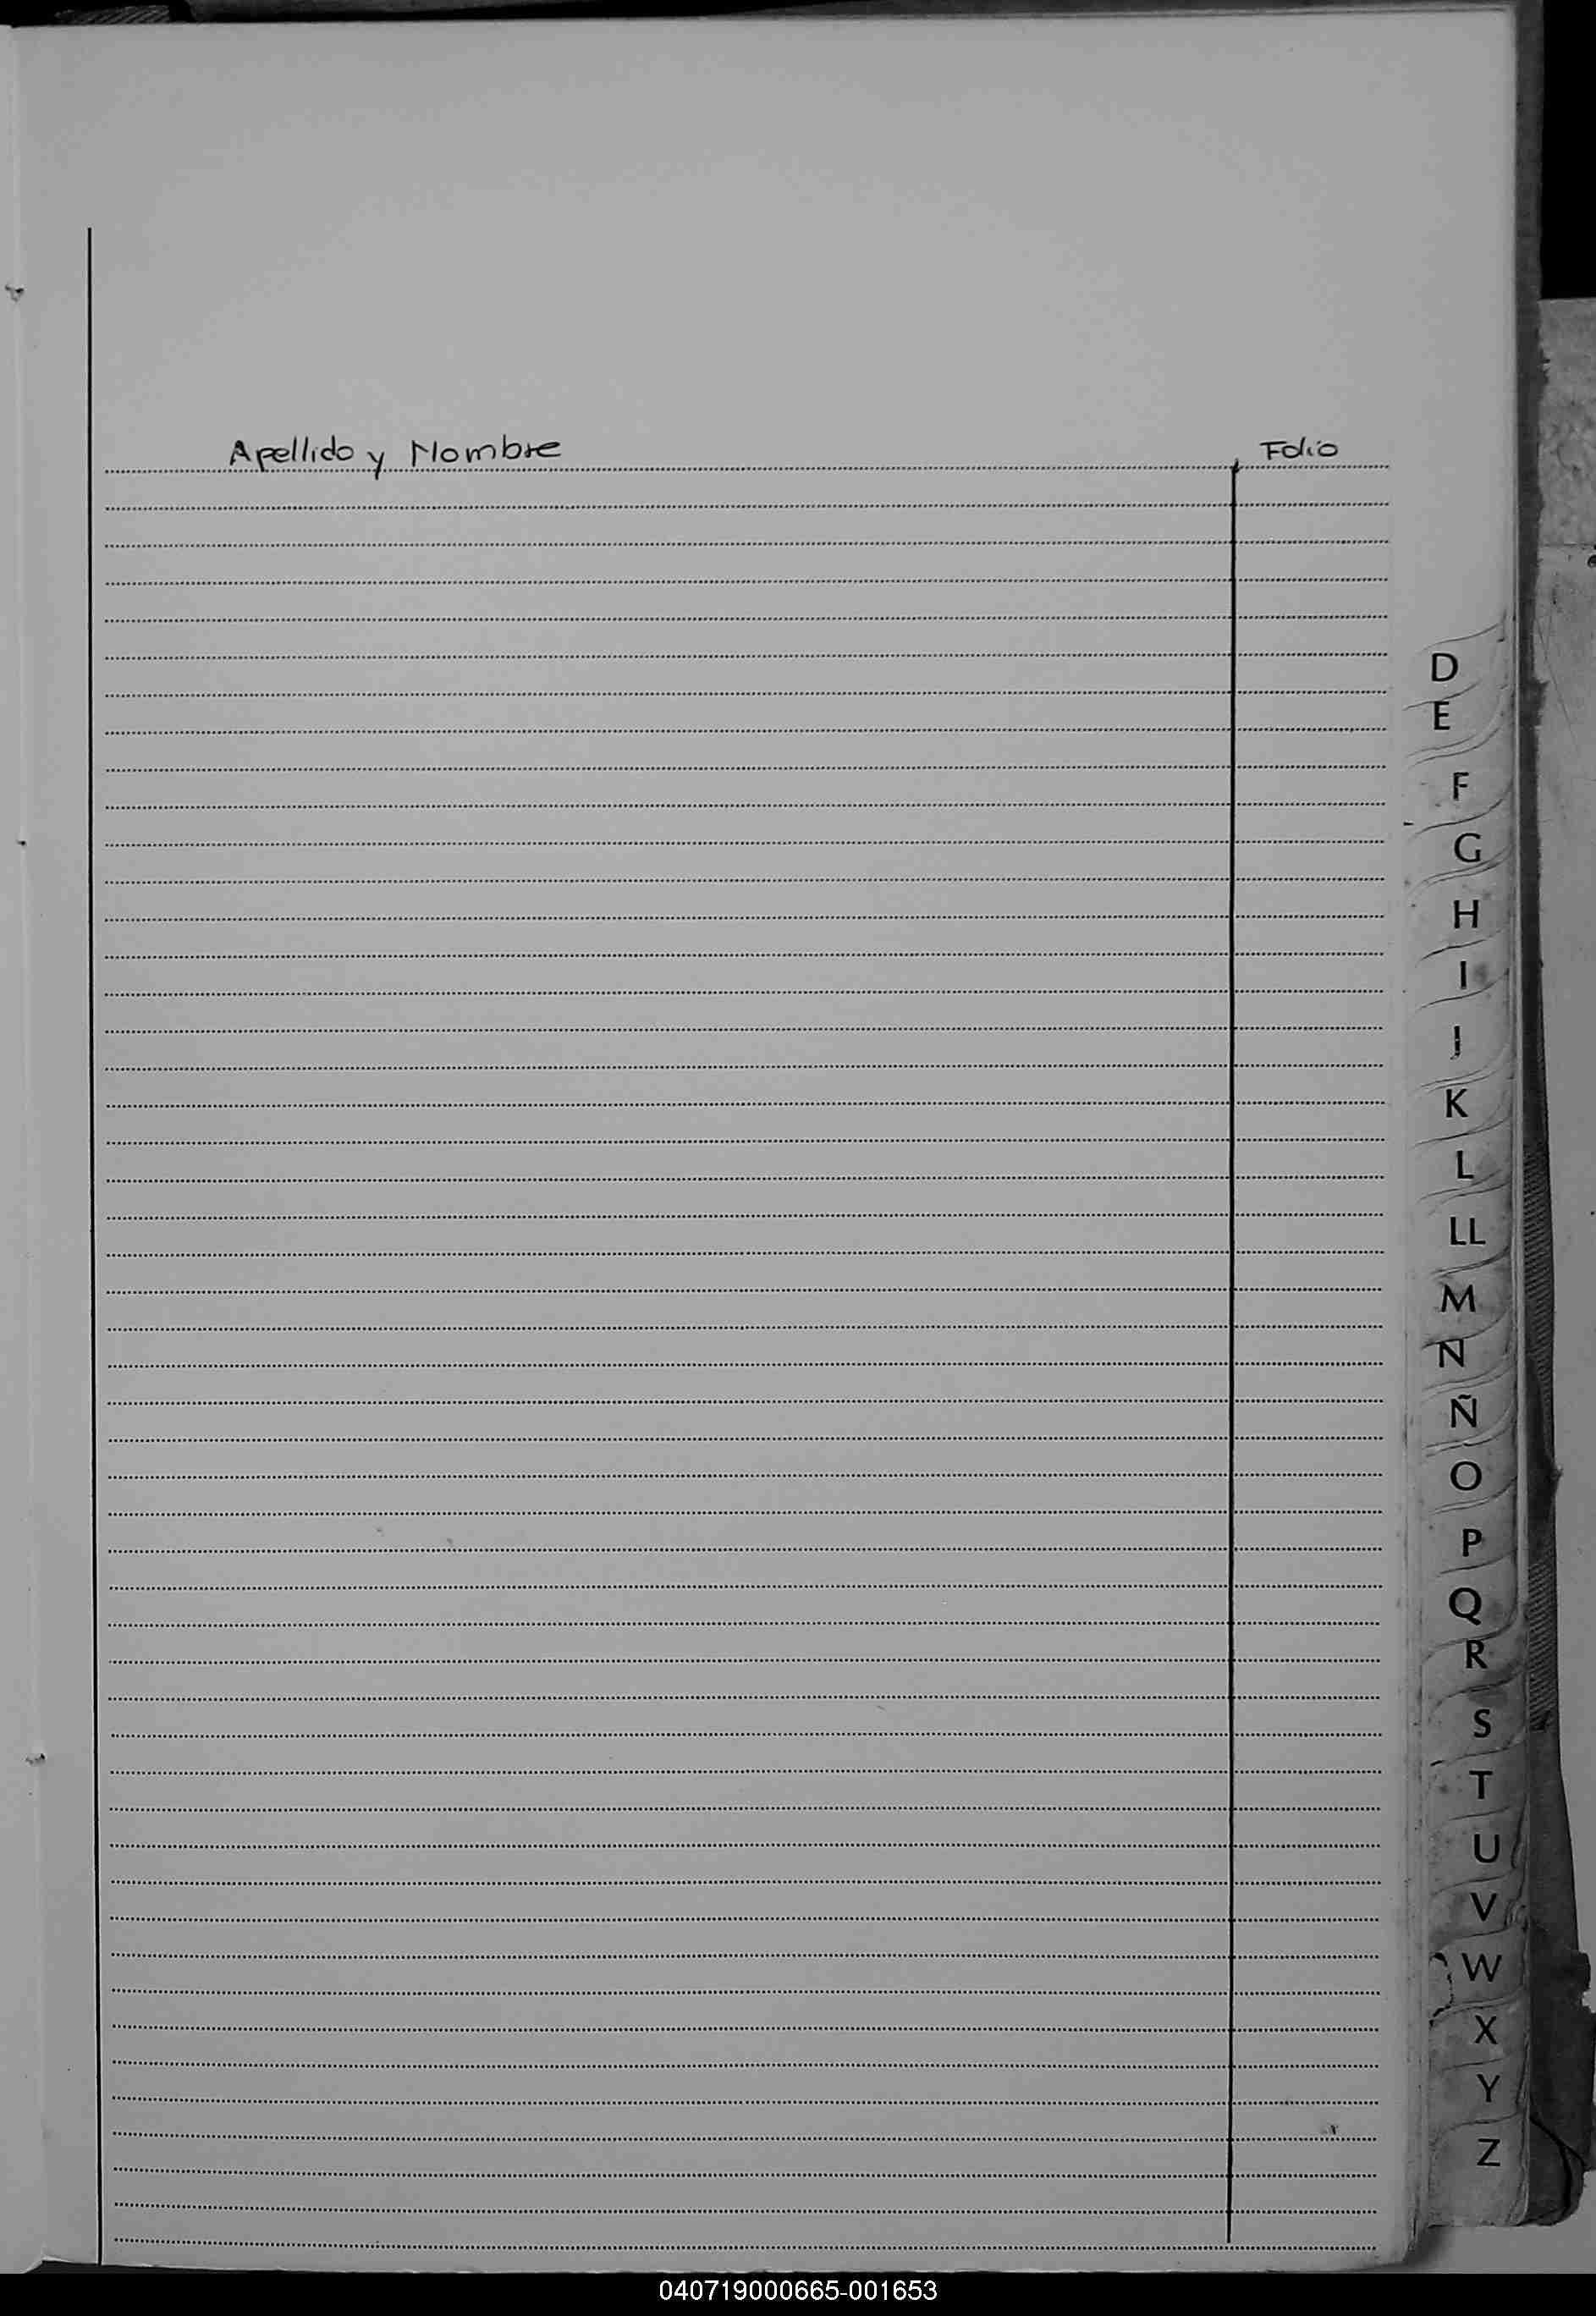 Apellido y Nombre Folio
D
E
F
G
H
I
J
K
L
LL
M
N
Ñ
O
P
Q
R
S
T
U
V
W
X
Y
Z
040719000665-001653